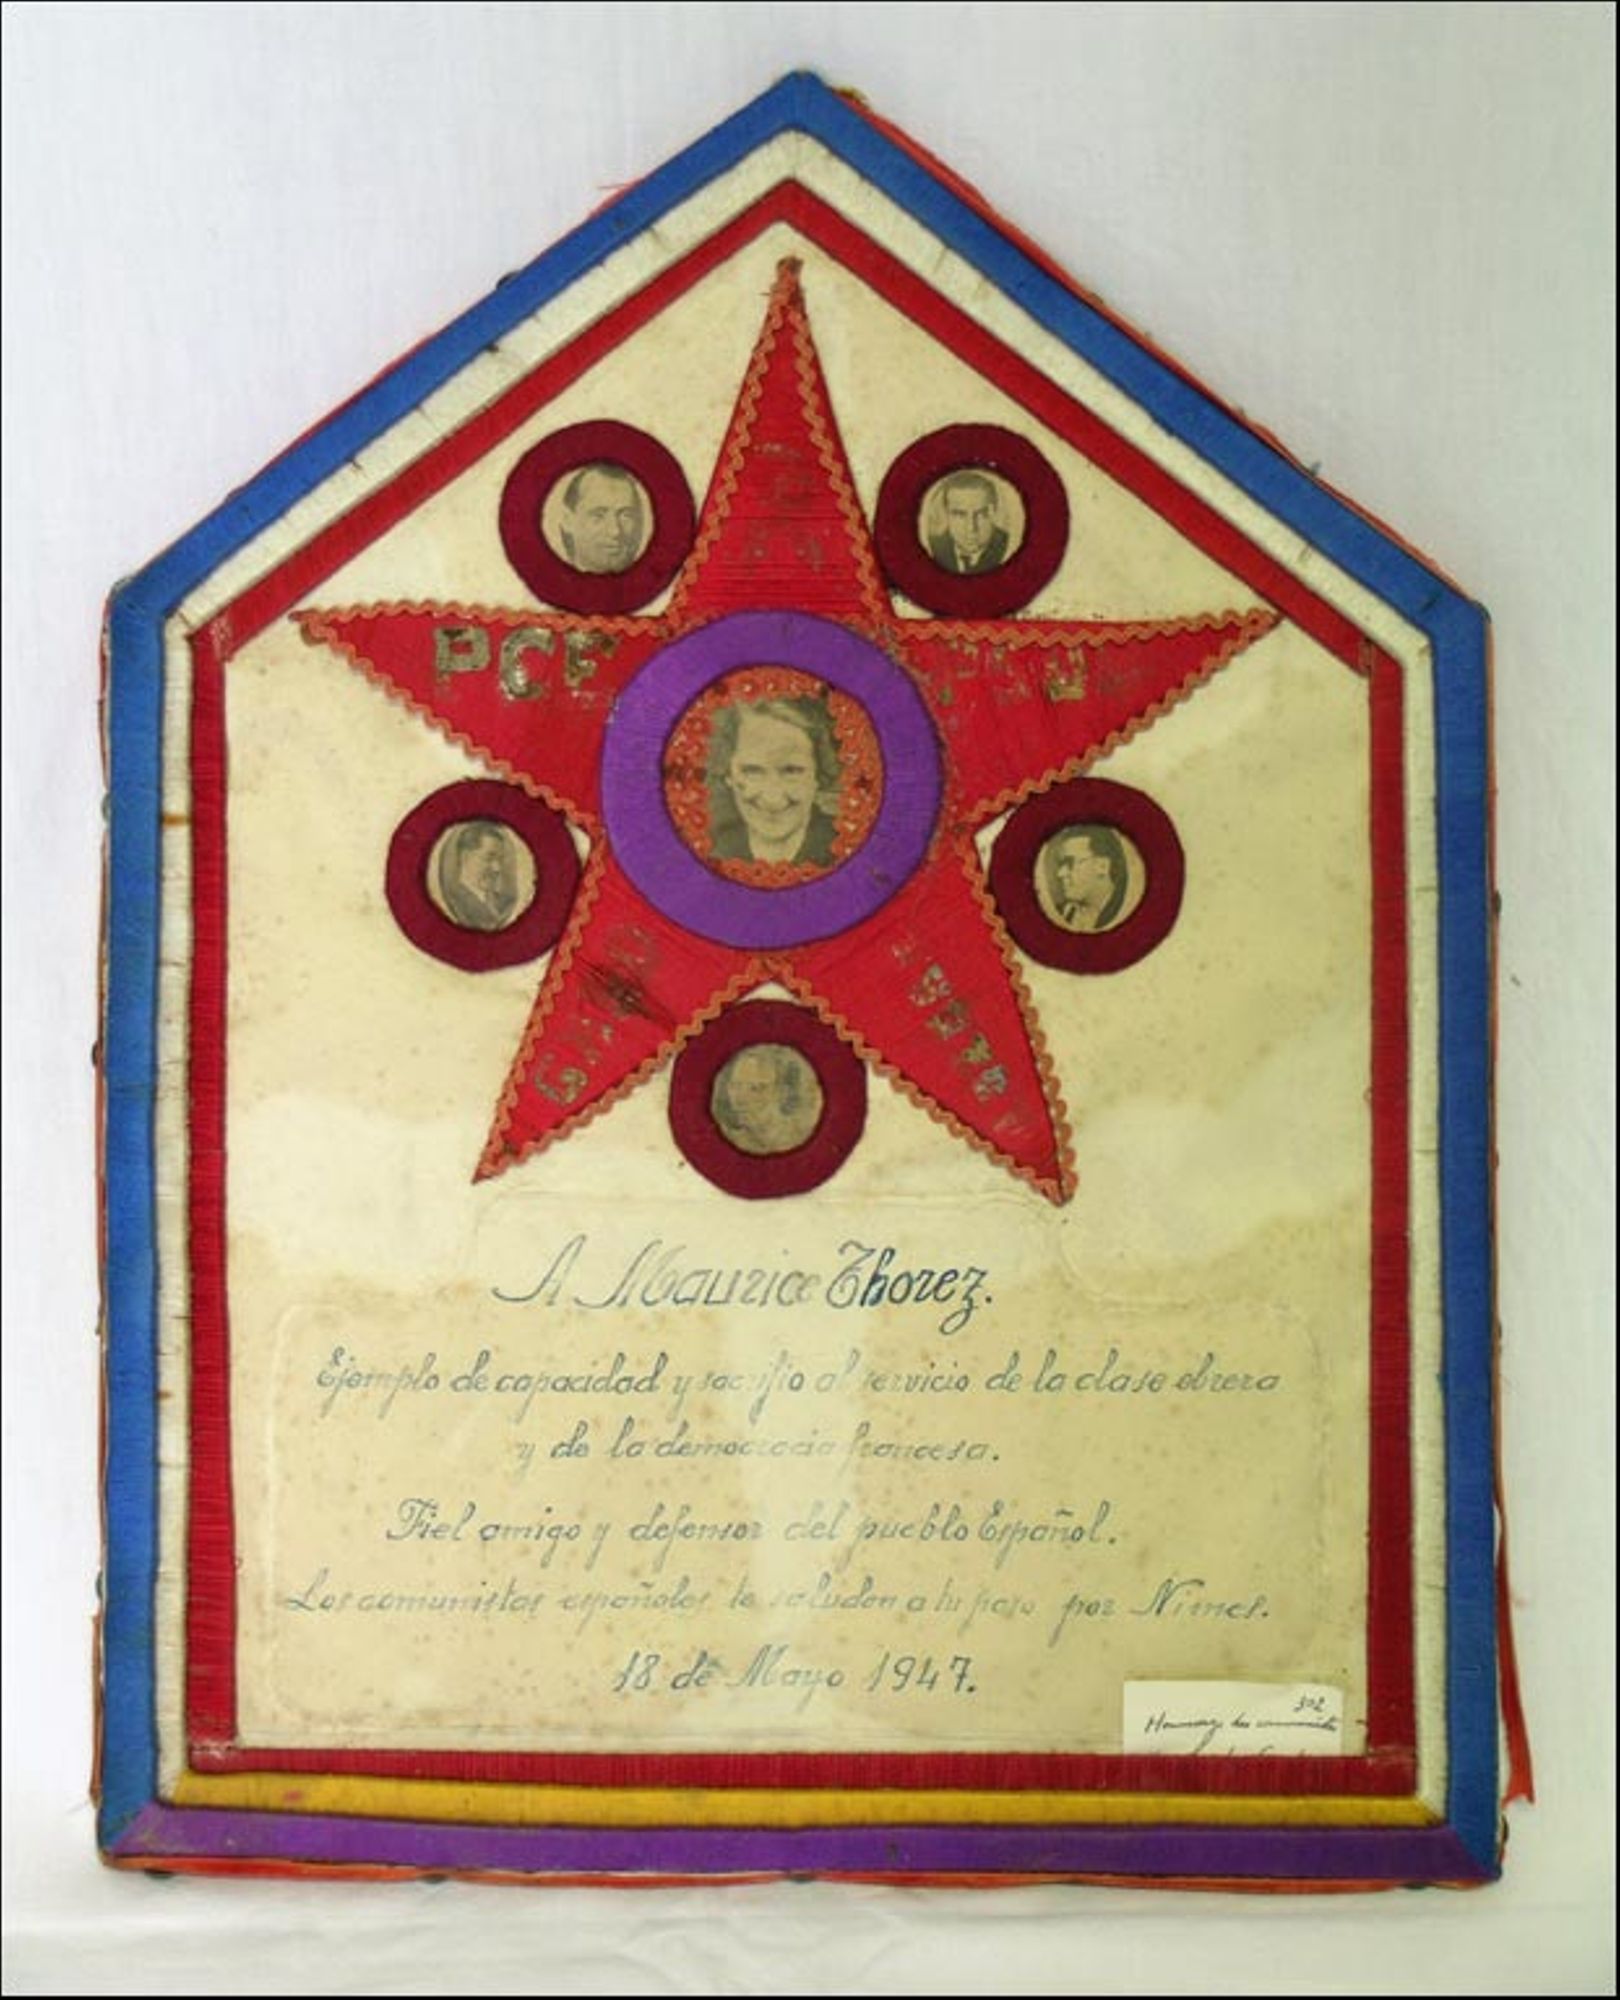 PCF
A Maurice Thorez.
Ejemplo de capacidad y al servicio de la clase obrera
y de la democracia francesa.
Fiel amigo y defensor del pueblo Español.
Los comunistas españoles te saludan a tu paso por Nimes.
18 de Mayo 1947.
302